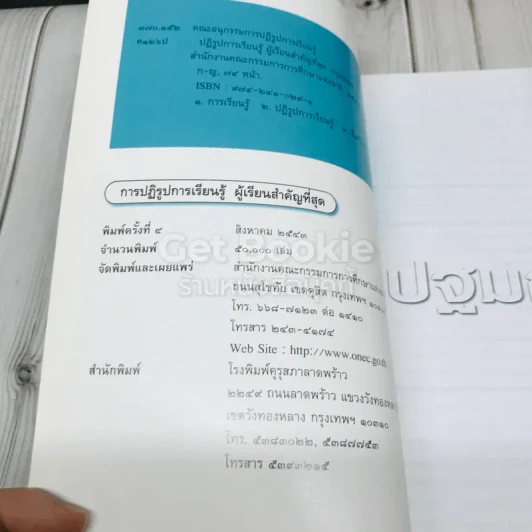 ๓๗๐.๑๕๒ คณะอนุกรรมการปฏิรูปการเรียนรู้
ค๑๒๖ป ปฏิรูปการเรียนรู้ ผู้เรียนสำคัญที่สุด
สำนักงานคณะกรรมการการศึกษาแห่งชาติ
ก-ญ, ๗๔ หน้า.
ISBN : ๙๗๔-๒๔๑-๐๒๙-๑
๑. การเรียนรู้ ๒. ปฏิรูปการเรียนรู้ ๓.
การปฏิรูปการเรียนรู้ ผู้เรียนสำคัญที่สุด
พิมพ์ครั้งที่ ๔ สิงหาคม ๒๕๔๓
จำนวนพิมพ์ ๕๐,๐๐๐ เล่ม
จัดพิมพ์และเผยแพร่ สำนักงานคณะกรรมการการศึกษาแห่งชาติ
ถนนสุโขทัย เขตดุสิต กรุงเทพฯ ๑๐๓๐๐
โทร. ๖๖๘-๗๑๒๓ ต่อ ๑๔๑๐
โทรสาร ๒๔๓-๔๑๗๔
Web Site : http://www.onec.go.th
สำนักพิมพ์ โรงพิมพ์คุรุสภาลาดพร้าว
๒๒๔๙ ถนนลาดพร้าว แขวงวังทองหลาง
เขตวังทองหลาง กรุงเทพฯ ๑๐๓๑๐
โทร. ๕๓๘๓๐๒๒, ๕๓๘๗๗๕๓
โทรสาร ๕๓๙๓๒๑๕
ปฐม
Get Bookie
ร้านหนังสือเก่า